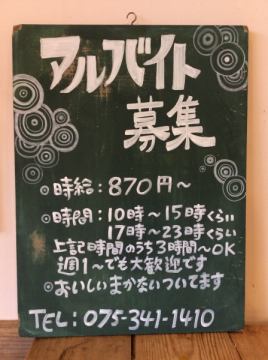 アルバイト
募集
◎時給：870円～
◎時間：10時～15時くらい
17時～23時くらい
上記時間のうち3時間～OK
週1～でも大歓迎です
◎おいしいまかないついてます
TEL：075-341-1410